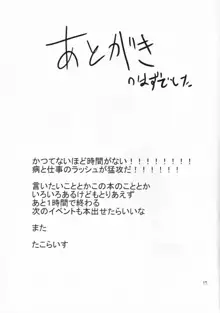 あとがき
のはずでした
かつてないほど時間がない!!!!!!!!
病と仕事のラッシュが猛攻だ!!!!!!
言いたいこととかこの本のこととか
いろいろあるけどもとりあえず
あと1時間で終わる
次のイベントも本出せたらいいな
また
たこらいす